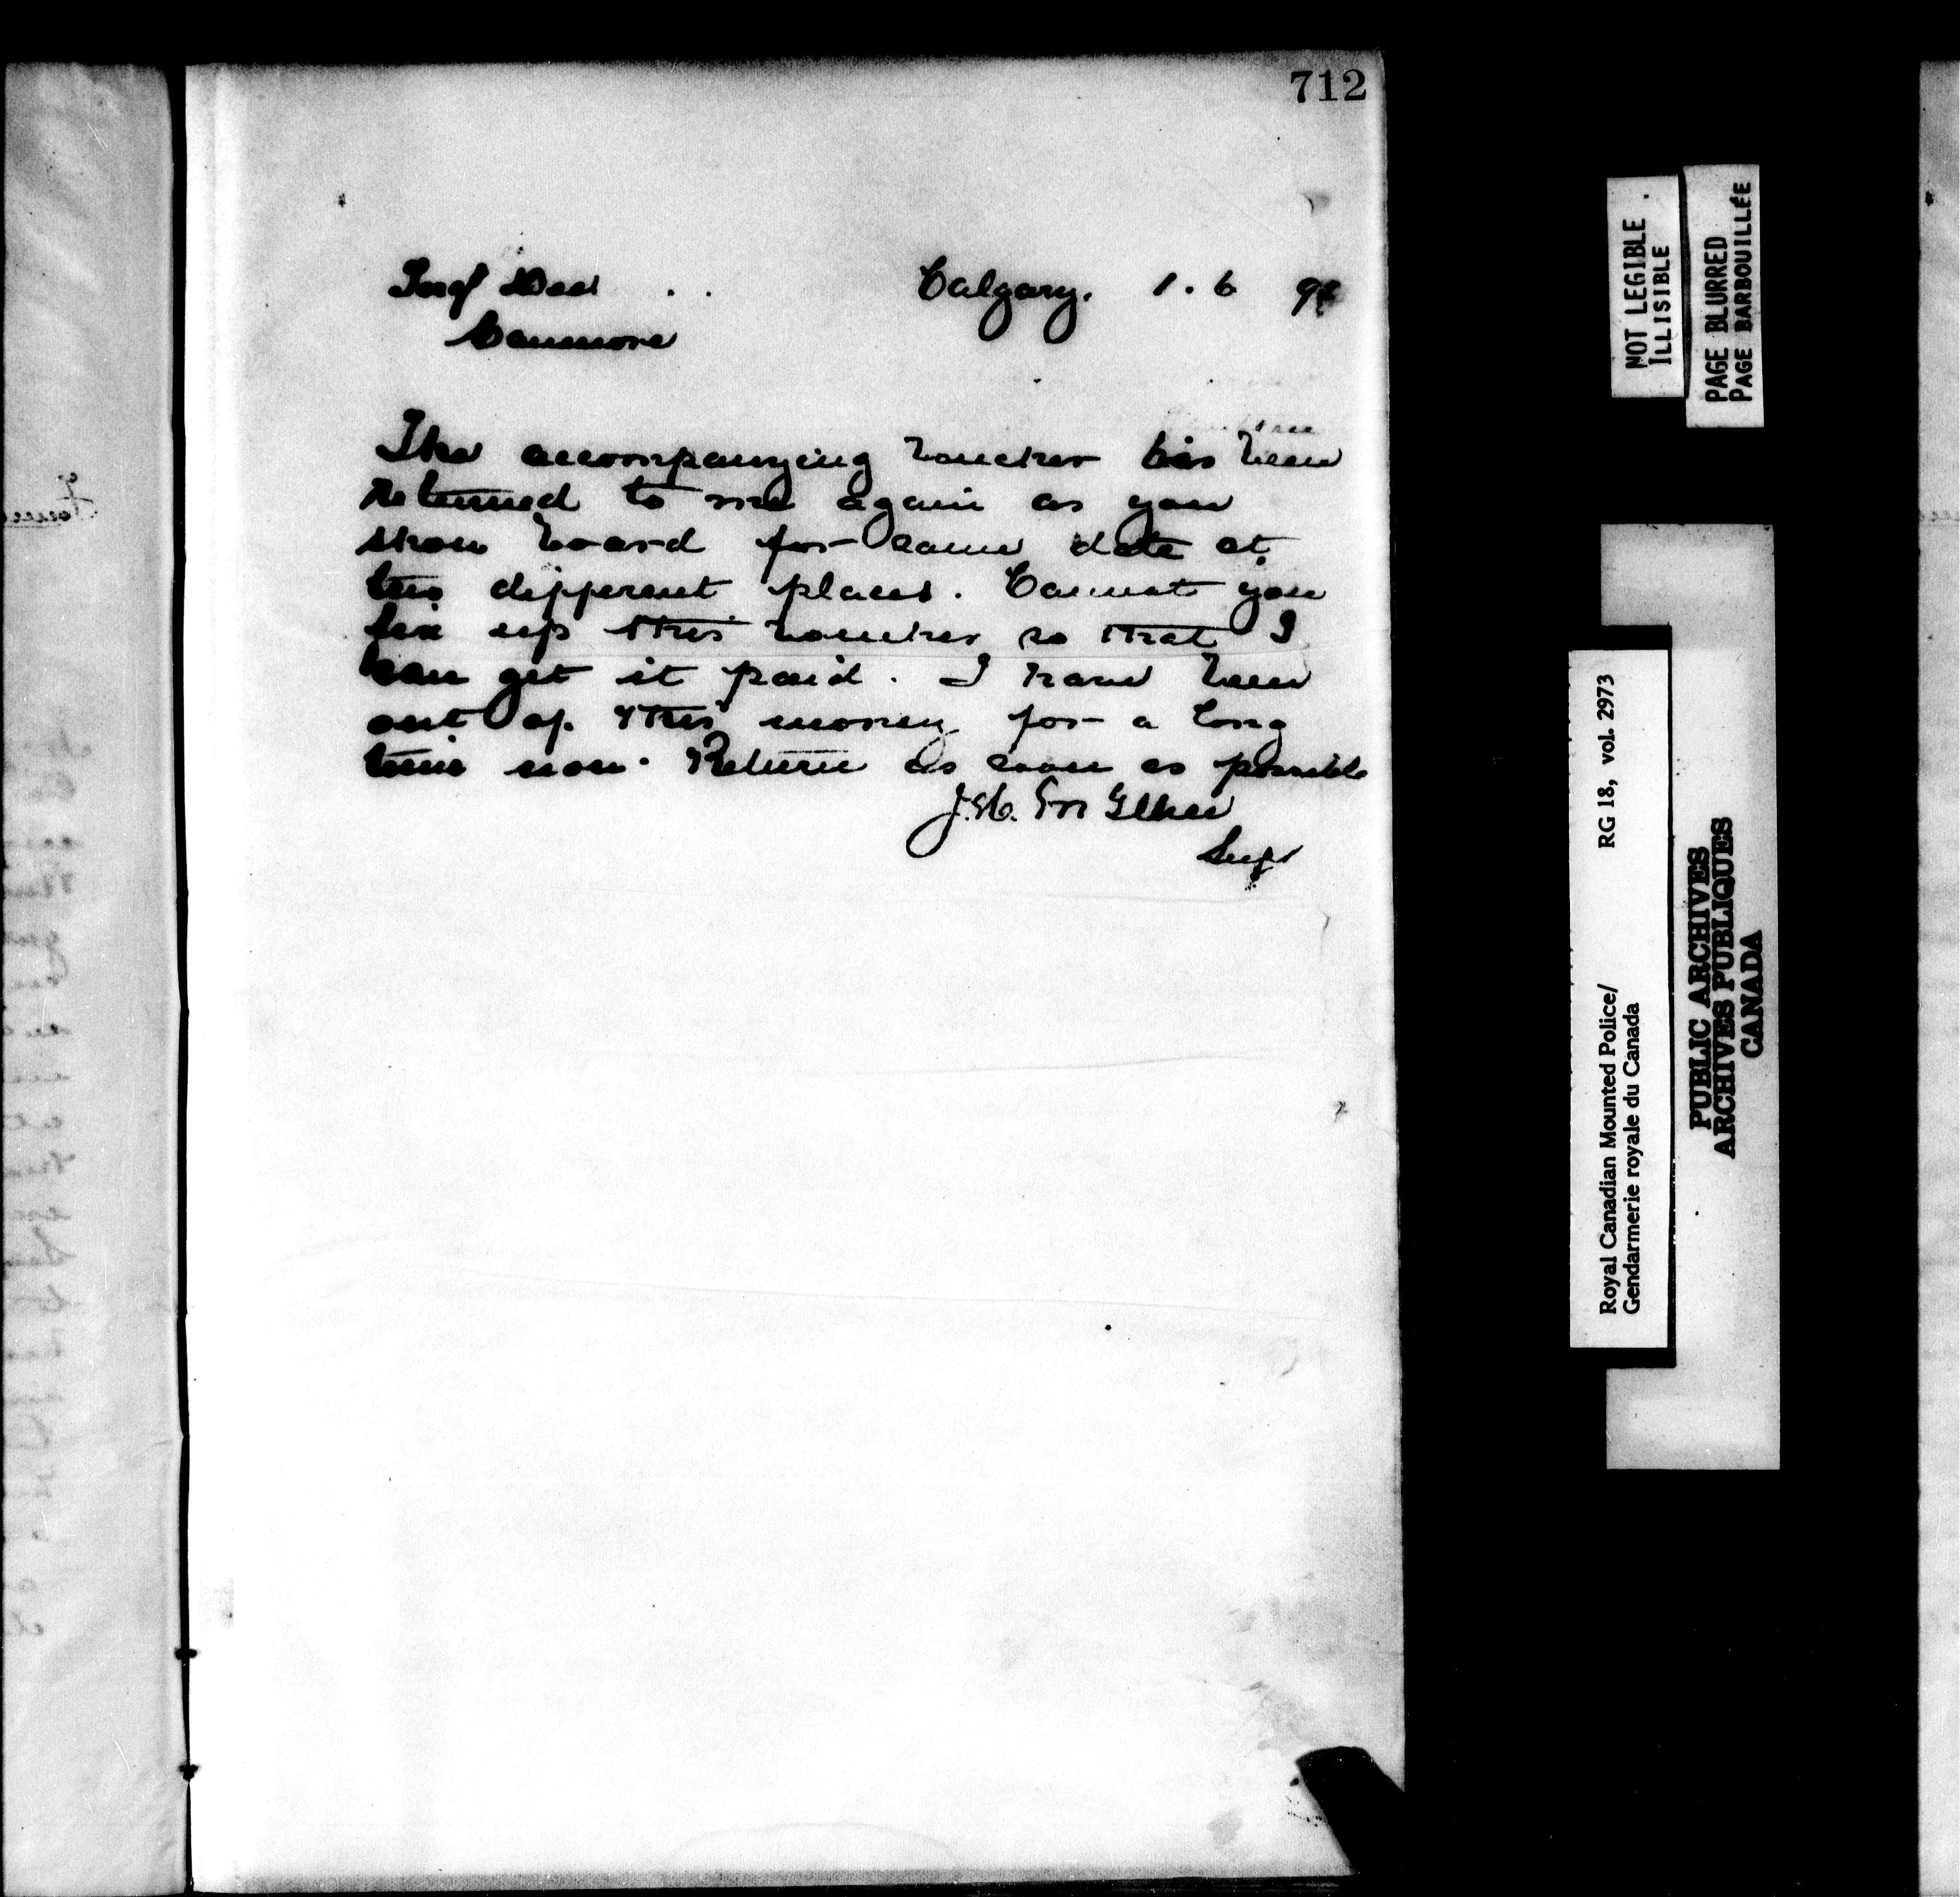 712
Sergt Dee
Calgary. 1. 6 9
Canmore
The accompanying voucher has been
returned to me again as you
show board for same date at
two different places. Cannot you
fix up this voucher so that I
can get it paid. I have been
out of this money for a long
time now. Return as soon as possible
J.H. McIllree
Supt
NOT LEGIBLE
ILLISIBLE
PAGE BLURRED
PAGE BARBOUILLÉE
Royal Canadian Mounted Police/ RG 18, vol. 2973
Gendarmerie royale du Canada
PUBLIC ARCHIVES
ARCHIVES PUBLIQUES
CANADA